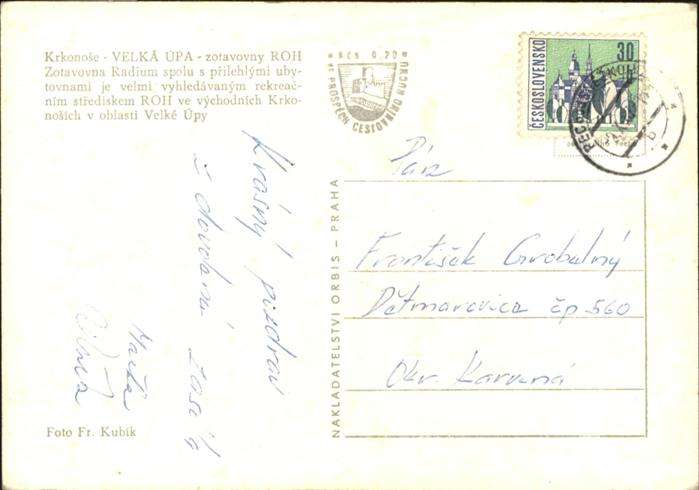 Krkonoše - VELKÁ ÚPA - zotavovny ROH
Zotavovna Radium spolu s přilehlými uby-
tovnami je velmi vyhledávaným rekreač-
ním střediskem ROH ve východních Krko-
noších v oblasti Velké Úpy
KČS 0.20
VE PROSPĚCH CESTOVNÍHO RUCHU
ČESKOSLOVENSKO
30
Krásný pozdrav
z dovolené
Foto Fr. Kubík
NAKLADATELSTVÍ ORBIS - PRAHA
Pán
František Grobelný
Dětmarovice čp 560
Okr. Karviná